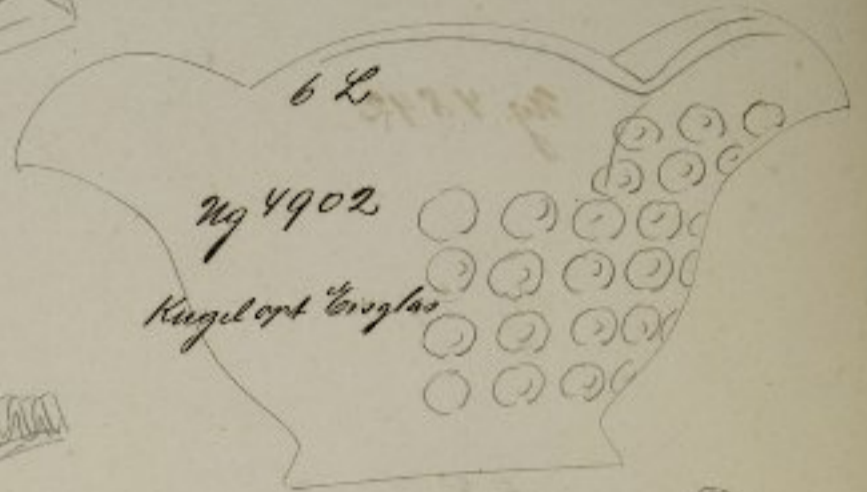 6 L
Ng 4902
Kugel opt Eisglas